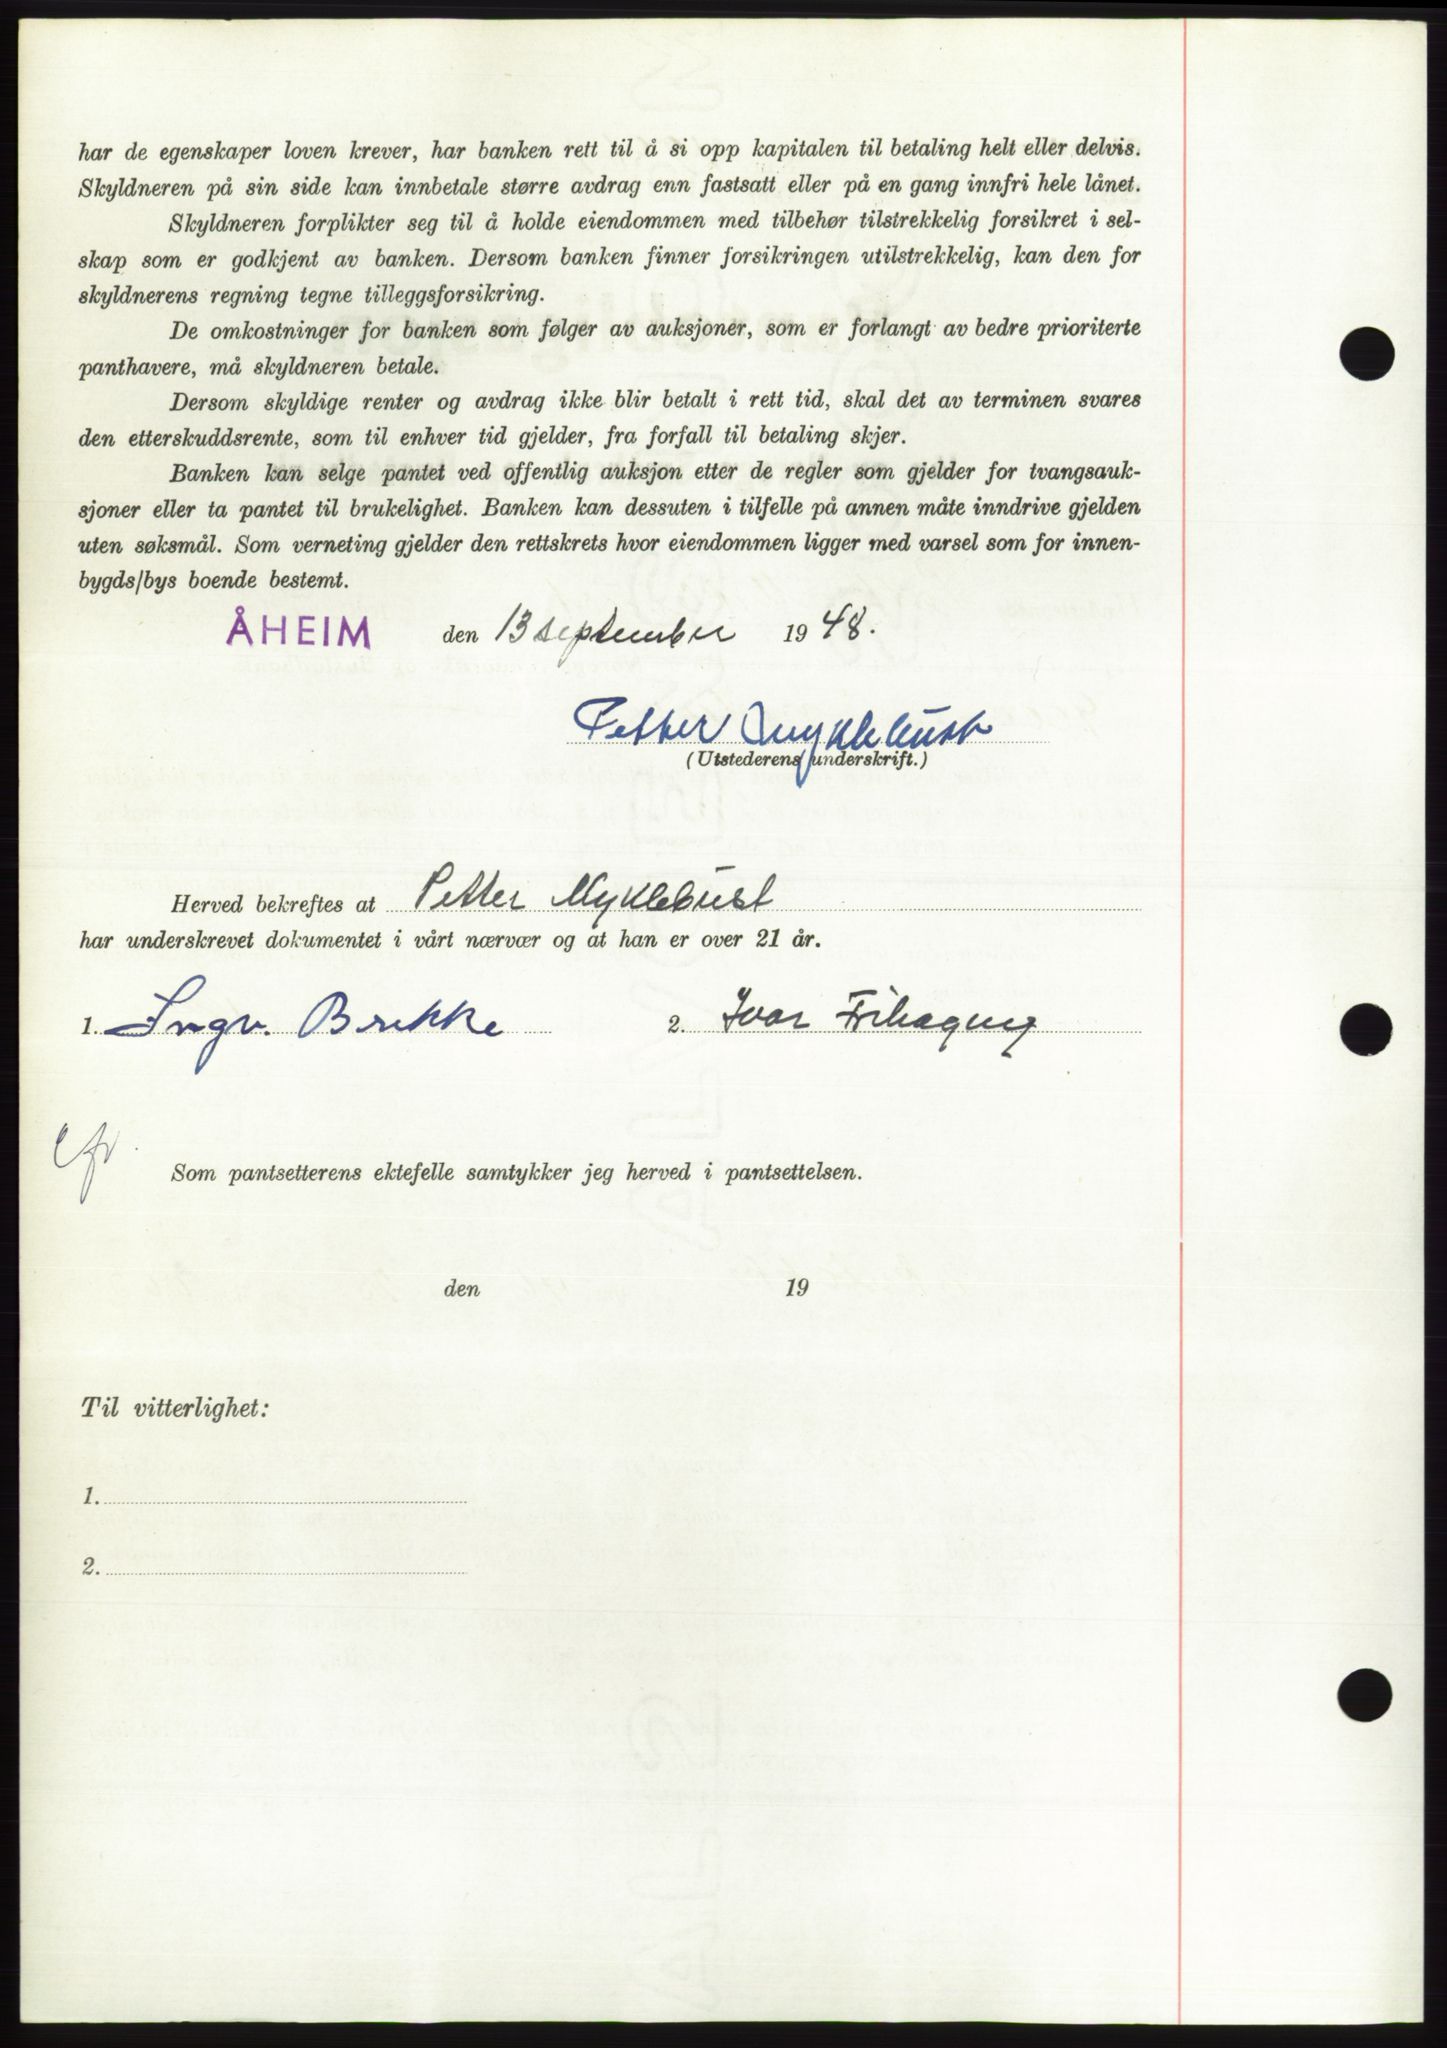 har de egenskaper loven krever, har banken rett til å si opp kapitalen til betaling helt eller delvis.
Skyldneren på sin side kan innbetale større avdrag enn fastsatt eller på en gang innfri hele lånet.
Skyldneren forplikter seg til å holde eiendommen med tilbehør tilstrekkelig forsikret i sel-
skap som er godkjent av banken. Dersom banken finner forsikringen utilstrekkelig, kan den for
skyldnerens regning tegne tilleggsforsikring.
De omkostninger for banken som følger av auksjoner, som er forlangt av bedre prioriterte
panthavere, må skyldneren betale.
Dersom skyldige renter og avdrag ikke blir betalt i rett tid, skal det av terminen svares
den etterskuddsrente, som til enhver tid gjelder, fra forfall til betaling skjer.
Banken kan selge pantet ved offentlig auksjon etter de regler som gjelder for tvangsauk-
sjoner eller ta pantet til brukelighet. Banken kan dessuten i tilfelle på annen måte inndrive gjelden
uten søksmål. Som verneting gjelder den rettskrets hvor eiendommen ligger med varsel som for innen-
bygds/bys boende bestemt.
ÅHEIM den 13 september 1948.
Petter Myklebust
(Utstederens underskrift.)
Herved bekreftes at Petter Myklebust
har underskrevet dokumentet i vårt nærvær og at han er over 21 år.
1. Ingv. Brekke 2. Ivar
Som pantsetterens ektefelle samtykker jeg herved i pantsettelsen.
den 19
Til vitterlighet:
1.
2.